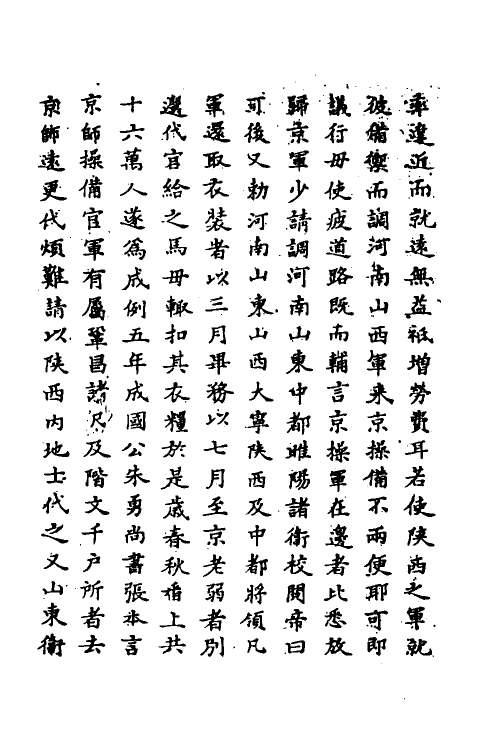 率違近而就遠無益祗增勞費耳若使陝西之軍就
彼備禦而調河南山西軍来京操備不兩便耶可即
議行毋使疲道路既而輔言京操軍在邊者比悉放
歸京軍少請調河南山東中都睢陽諸衛校閱帝曰
可後又勅河南山東山西大寧陝西及中都將領凡
軍還取衣裝者以三月畢務以七月至京老弱者別
選代官給之馬毋輒扣其衣糧於是歲春秋番上共
十六萬人遂為成例五年成國公朱勇尚書張本言
京師操備官軍有屬鞏昌諸及階文千户所者去
京師遠更代煩難請以陝西内地士代之又山東衛